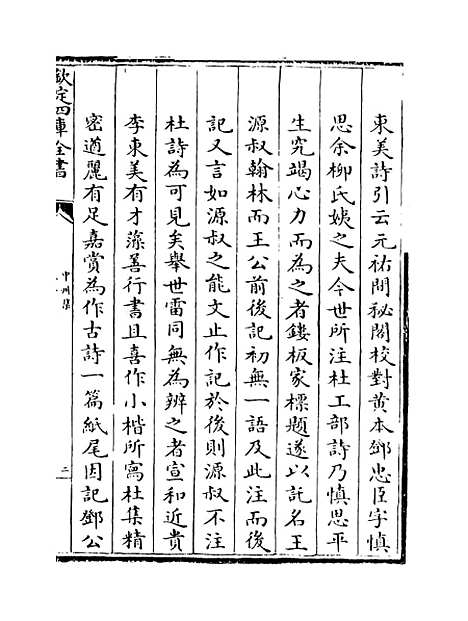 東美詩引云元祐間秘閣校對黄本鄧忠臣字慎
思余柳氏姨之夫今世所注杜工部詩乃慎思平
生究竭心力而為之者鏤板家標題遂以託名王
源叔翰林而王公前後記初無一語及此注而後
記又言如源叔之能文止作記於後則源叔不注
杜詩為可見矣舉世雷同無為辨之者宣和近貴
李東美有才藻善行書且喜作小楷所寫杜集精
密遒麗有足嘉賞為作古詩一篇紙尾因記鄧公
欽定四庫全書
中州集
二